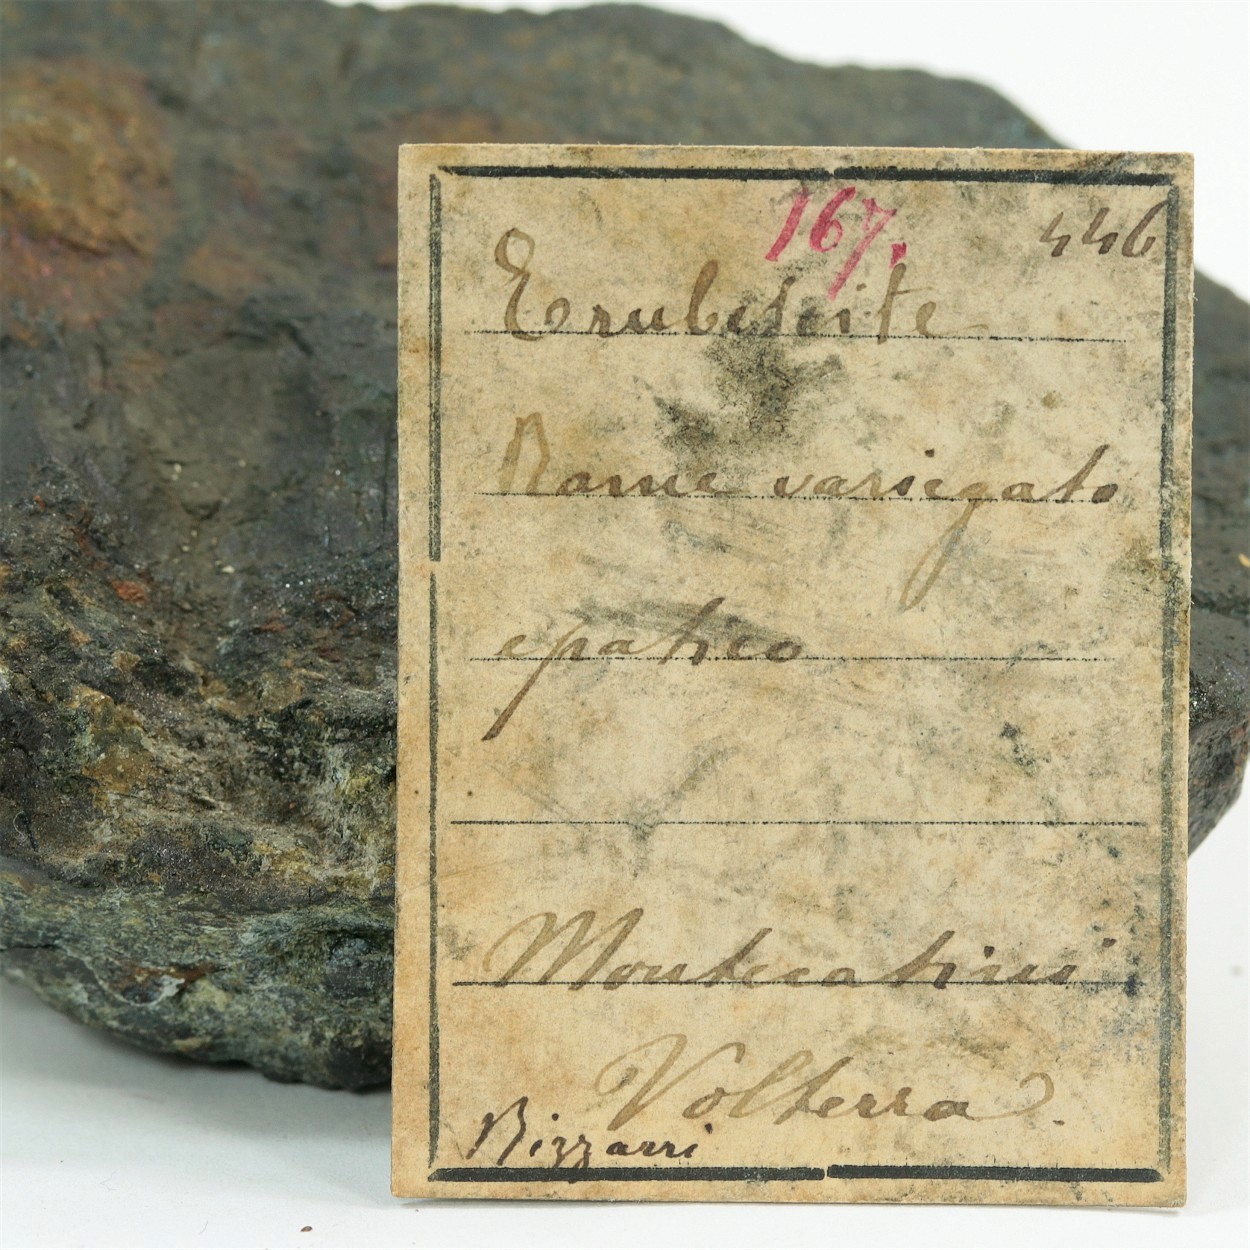 167.
446
Erubescite
Rame variegato
epatico
Montecatini
Volterra
Bizzarri